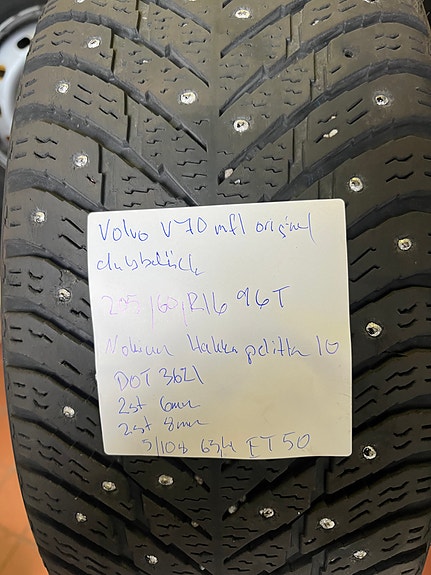 Volvo V70 mfl original
dubbdäck
205/60/R16 96T
Nokian Hakkapelitta 10
DOT 3621
2st 6mm
2st 8mm
5/108 634 ET50